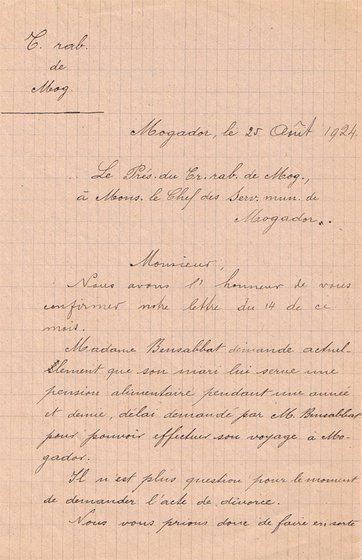 T. rab.
de
Mog.
Mogador, le 25 Août 1924.
Le Prés. du Tr. rab. de Mog.,
à Mons. le Chef des Serv. mun. de
Mogador..
Monsieur,
Nous avons l'honneur de vous
confirmer notre lettre du 14 de ce
mois.
Madame Bensabbat demande actuel-
lement que son mari lui serve une
pension alimentaire pendant une année
et demie, délai demandé par M. Bensabbat
pour pouvoir effectuer son voyage à Mo-
gador.
Il n'est plus question pour le moment
de demander l'acte de divorce.
Nous vous prions donc de faire en sorte